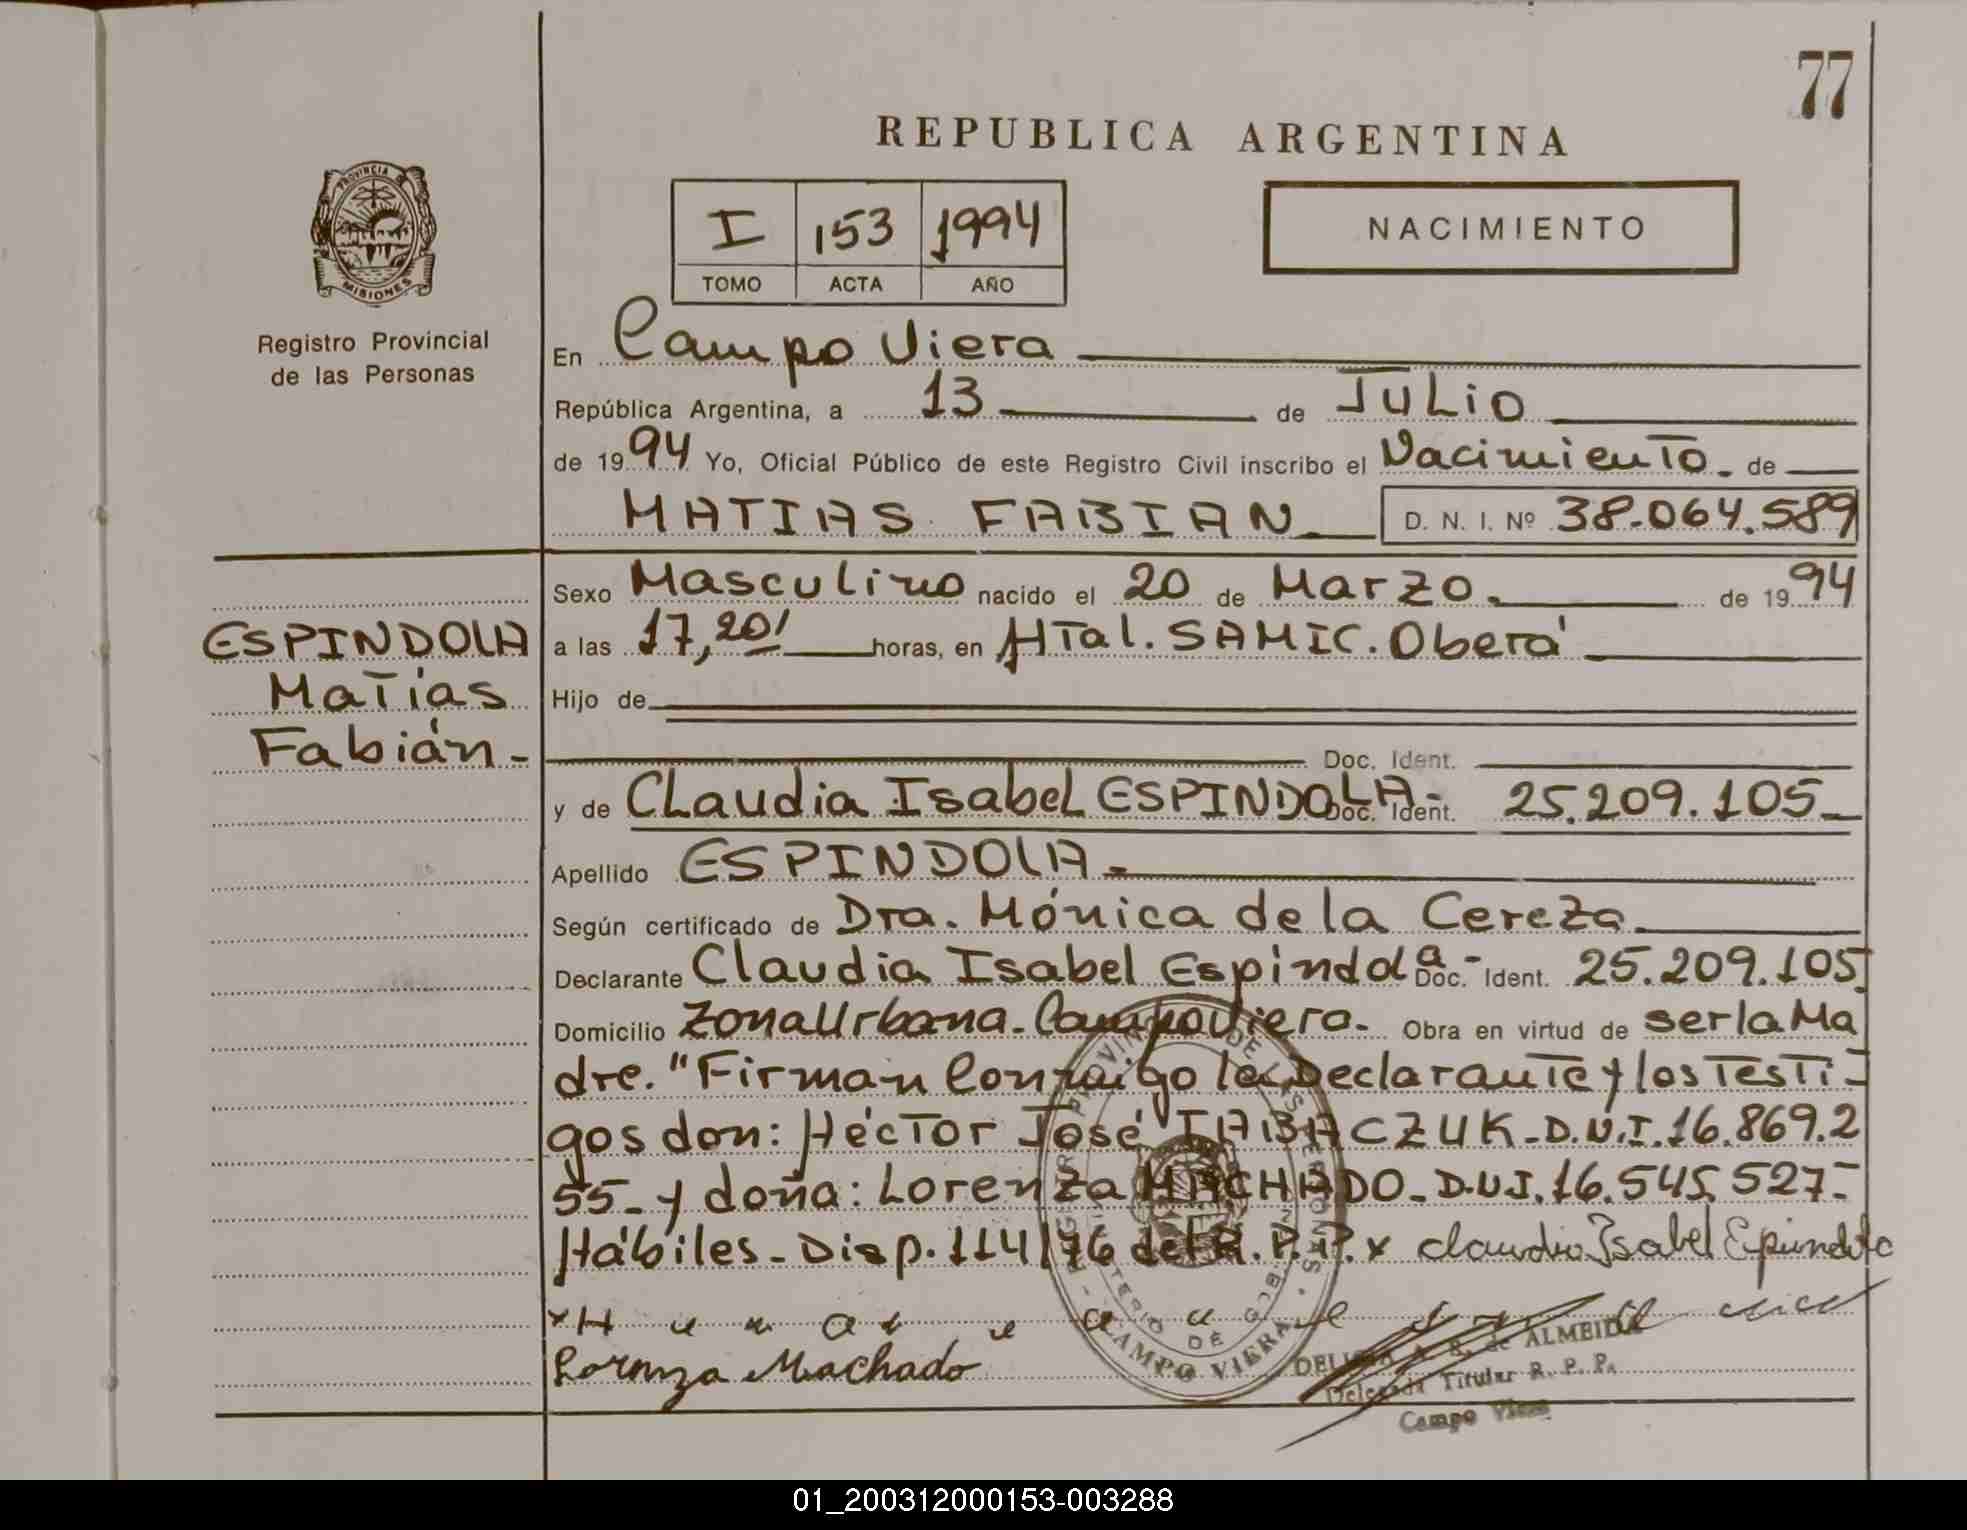 77
REPUBLICA ARGENTINA
PROVINCIA
MISIONES
Registro Provincial
de las Personas
I 153 1994
TOMO ACTA AÑO
NACIMIENTO
En Campo Viera
República Argentina, a 13 de Julio
de 1994 Yo, Oficial Público de este Registro Civil inscribo el Nacimiento de
MATIAS FABIAN D. N. I. Nº 38.064.589
Sexo Masculino nacido el 20 de Marzo. de 1994
ESPINDOLA
Matías
Fabián-
a las 17,20' horas, en Htal. SAMIC. Oberá
Hijo de
Doc. Ident.
y de Claudia Isabel ESPINDOLA- Doc. Ident. 25.209.105
Apellido ESPINDOLA-
Según certificado de Dra. Mónica de la Cereza
Declarante Claudia Isabel Espindola- Doc. Ident. 25.209.105
Domicilio Zona Urbana-Campo Viera- Obra en virtud de ser la Ma
dre. "Firman Conmigo la Declarante y los Testi-
gos don: Héctor José TABACZUK-D.N.I.16.869.2
55- y doña: Lorenza MACHADO-D.N.I.16.545.527-
Hábiles-Disp.114/76 del R.P.P. x Claudia Isabel Espindola
Lorenza Machado
CAMPO VIERA
de ALMEIDA
Delegada Titular R. P. P.
Campo Viera
01_200312000153-003288